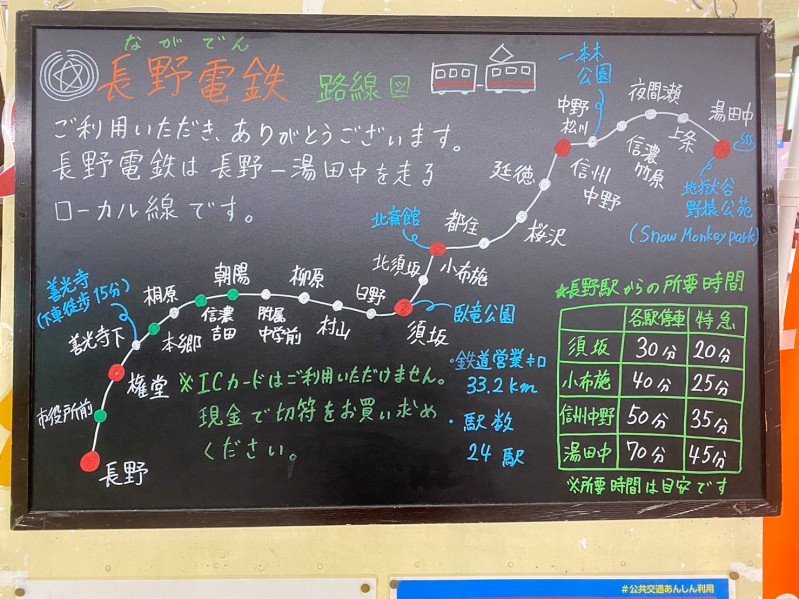 ながでん
長野電鉄 路線図
ご利用いただき、ありがとうございます。
長野電鉄は長野ー湯田中を走る
ローカル線です。
長野
市役所前
権堂
善光寺下
善光寺
(下車徒歩15分)
本郷
桐原
信濃
吉田
朝陽
附属
中学前
柳原
村山
日野
須坂
臥竜公園
北須坂
小布施
北斎館
都住
桜沢
延徳
中野
松川
一本木
公園
信州
中野
信濃
竹原
夜間瀬
上条
湯田中
地獄谷
野猿公苑
(Snow Monkey park)
※ICカードはご利用いただけません。
現金で切符をお買い求め
ください。
・鉄道営業キロ
33.2km
・駅数
24駅
★長野駅からの所要時間
各駅停車 特急
須坂 30分 20分
小布施 40分 25分
信州中野 50分 35分
湯田中 70分 45分
※所要時間は目安です
#公共交通あんしん利用